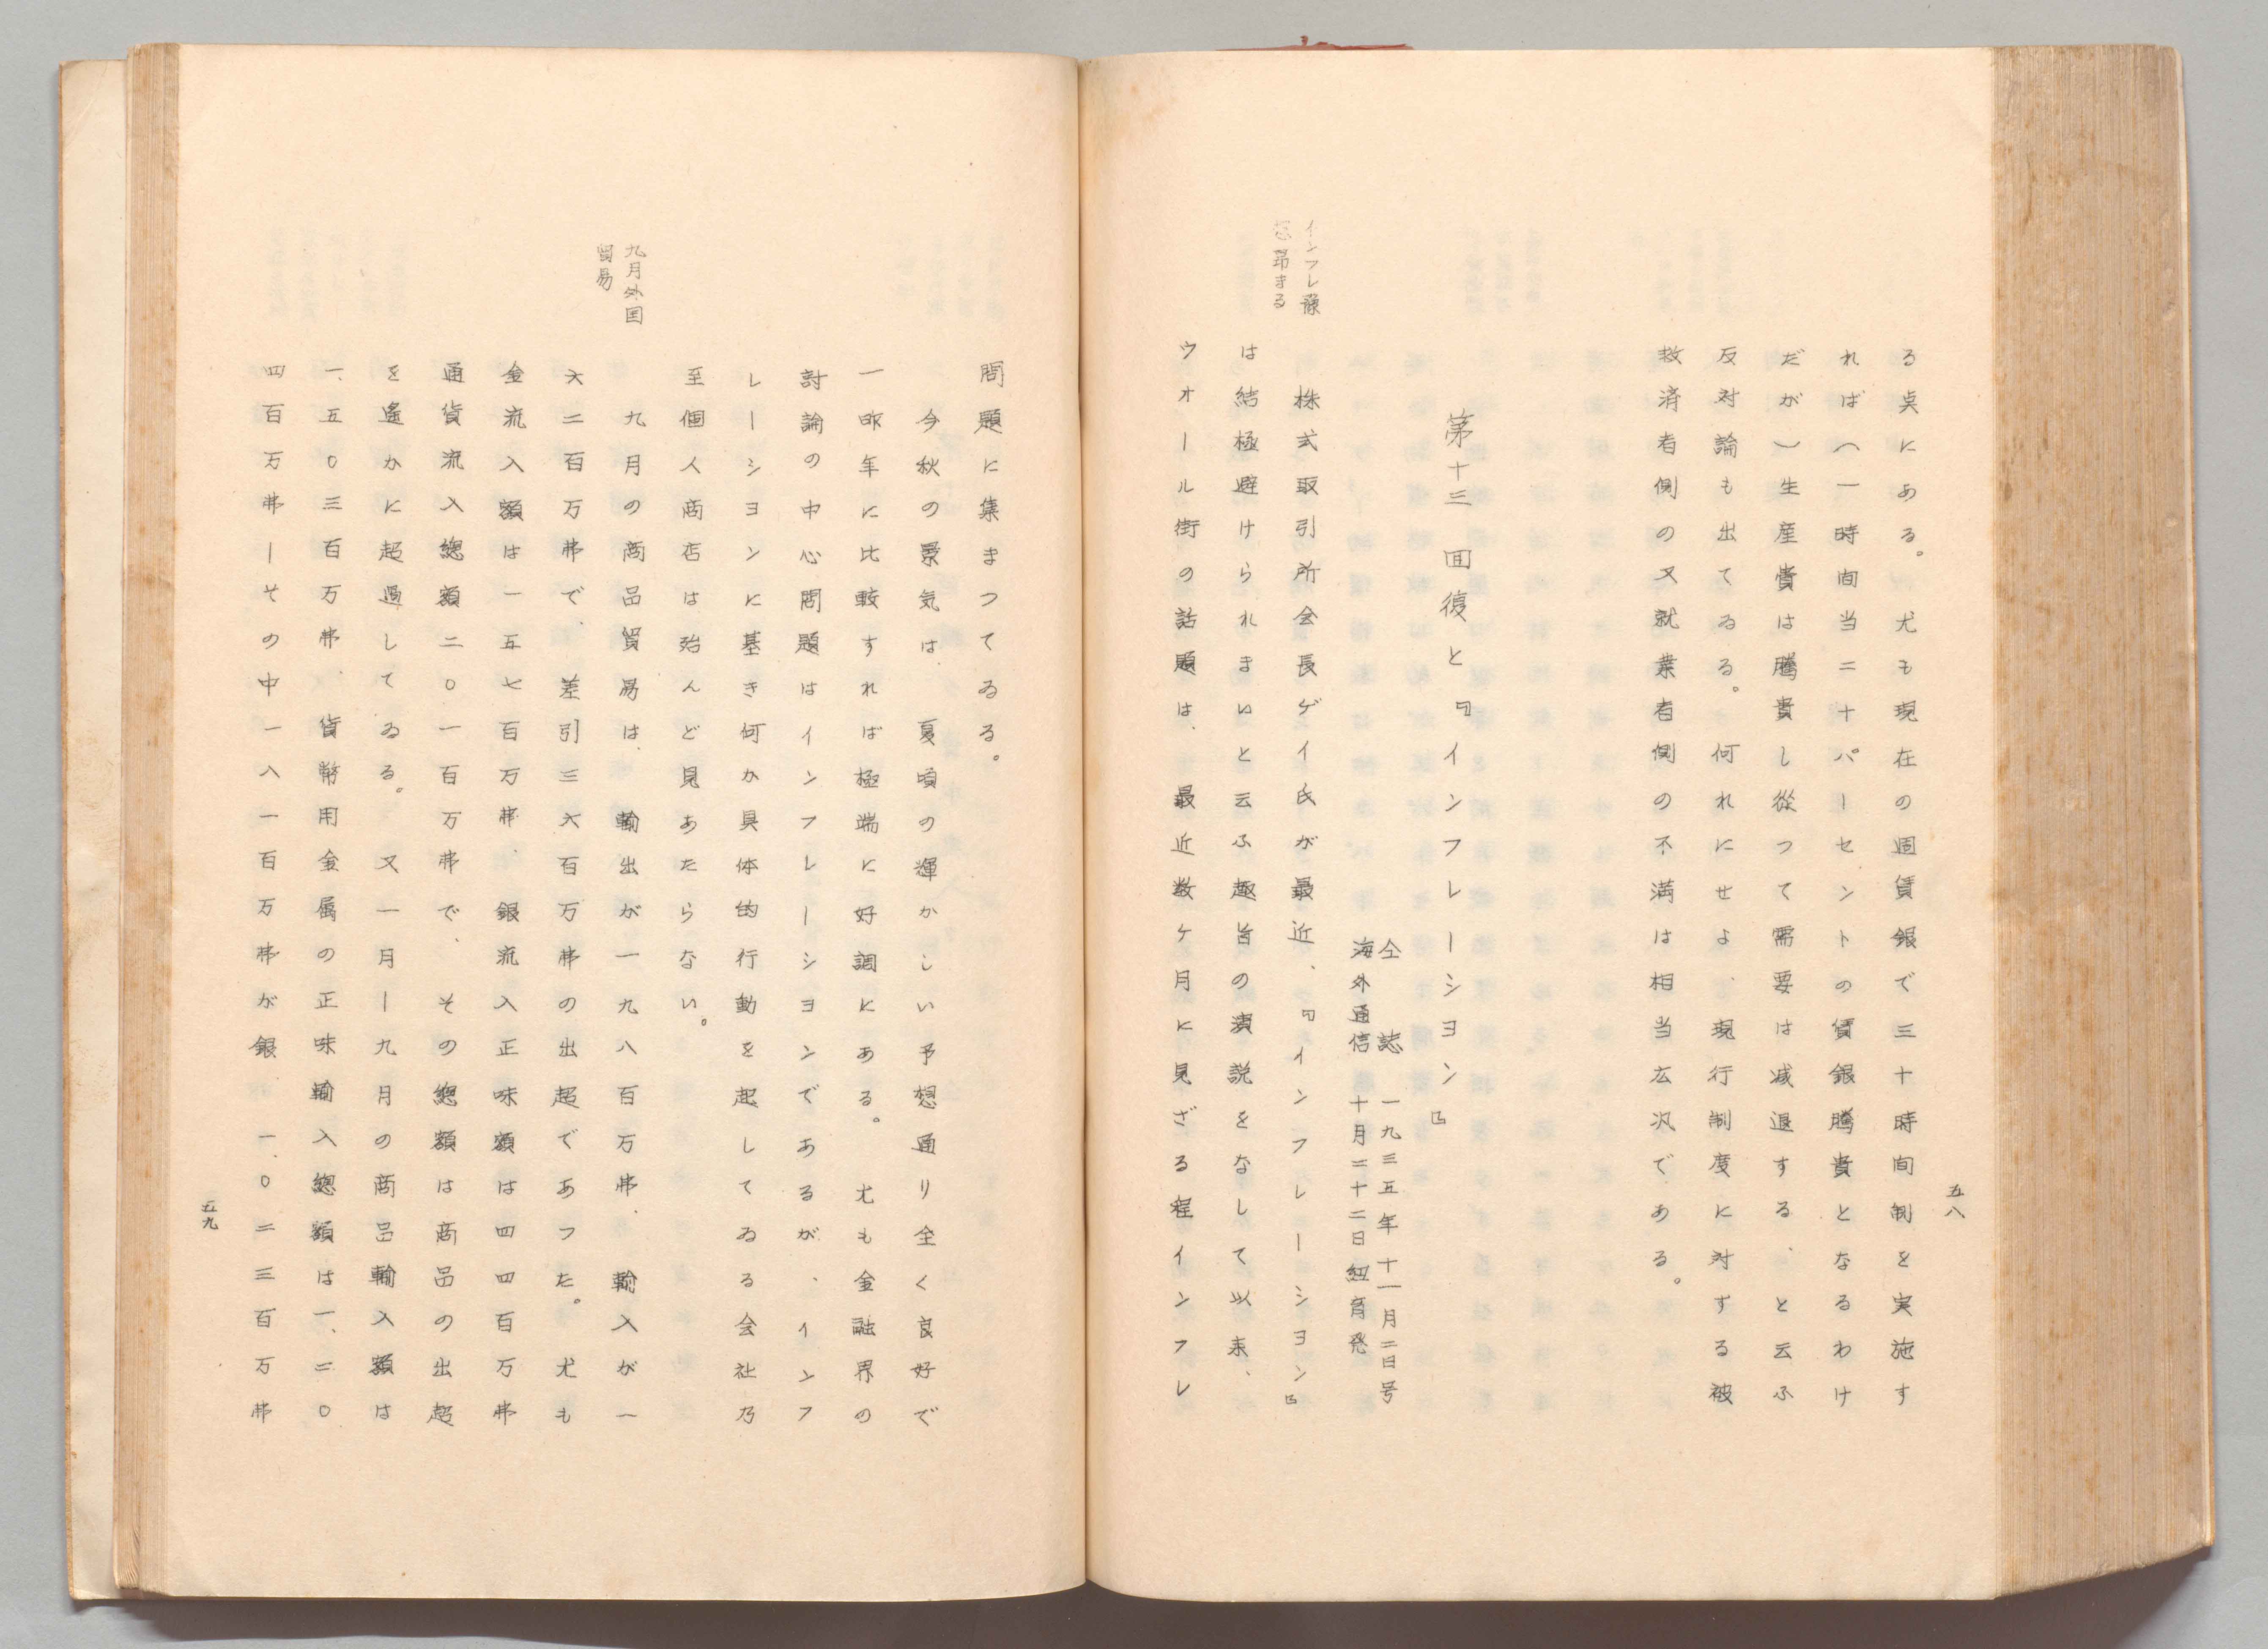 五八
る点にある。尤も現在の週賃銀で三十時間制を実施す
れば（一時間当二十パーセントの賃銀騰貴となるわけ
だが）生産費は騰貴し従つて需要は減退する、と云ふ
反対論も出てゐる。何れにせよ、現行制度に対する被
救済者側の又就業者側の不満は相当広汎である。
第十三 回復と『インフレーシヨン』
仝誌 一九三五年十一月二日号
海外通信十月二十二日紐育発
インフレ
昂まる
株式取引所会長ゲイ氏が最近、『インフレーシヨン』
は結極避けられまいと云ふ趣旨の演説をなして以来、
ウオール街の話題は、最近数ケ月に見ざる程インフレ
問題に集まつてゐる。
今秋の景気は、夏頃の輝かしい予想通り全く良好で
一昨年に比較すれば極端に好調にある。尤も金融界の
討論の中心問題はインフレーシヨンであるが、インフ
レーシヨンに基き何か具体的行動を起してゐる会社乃
至個人商店は殆んど見あたらない。
九月外国
貿易
九月の商品貿易は、輸出が一九八百万弗、輸入が一
六二百万弗で、差引三六百万弗の出超であつた。尤も
金流入額は一五七百万弗、銀流入正味額は四四百万弗
通貨流入総額二〇一百万弗で、その総額は商品の出超
を遙かに超過してゐる。又一月ー九月の商品輸入額は
一、五〇三百万弗、貨幣用金属の正味輸入総額は一、二〇
四百万弗ーその中一八一百万弗が銀 一、〇二三百万弗
五九